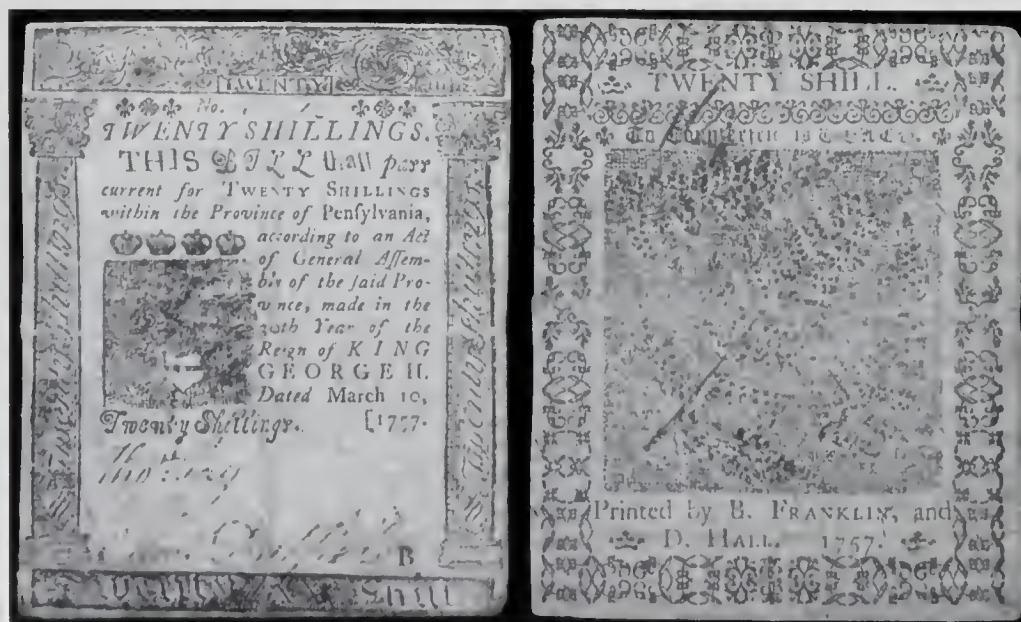 TWENTY
No.
TWENTY SHILLINGS.
THIS BILL ſhall paſſ
current for TWENTY SHILLINGS
within the Province of Penſylvania,
according to an Act
of General Aſſem-
bly of the ſaid Pro-
vince, made in the
30th Year of the
Reign of KING
GEORGE II.
Dated March 10,
Twenty Shillings. [1757.
B
Twenty Shillings
Twenty Shillings
Shill
TWENTY SHILL.
To Counterfeit is DEATH.
Printed by B. FRANKLIN, and
D. HALL. 1757.